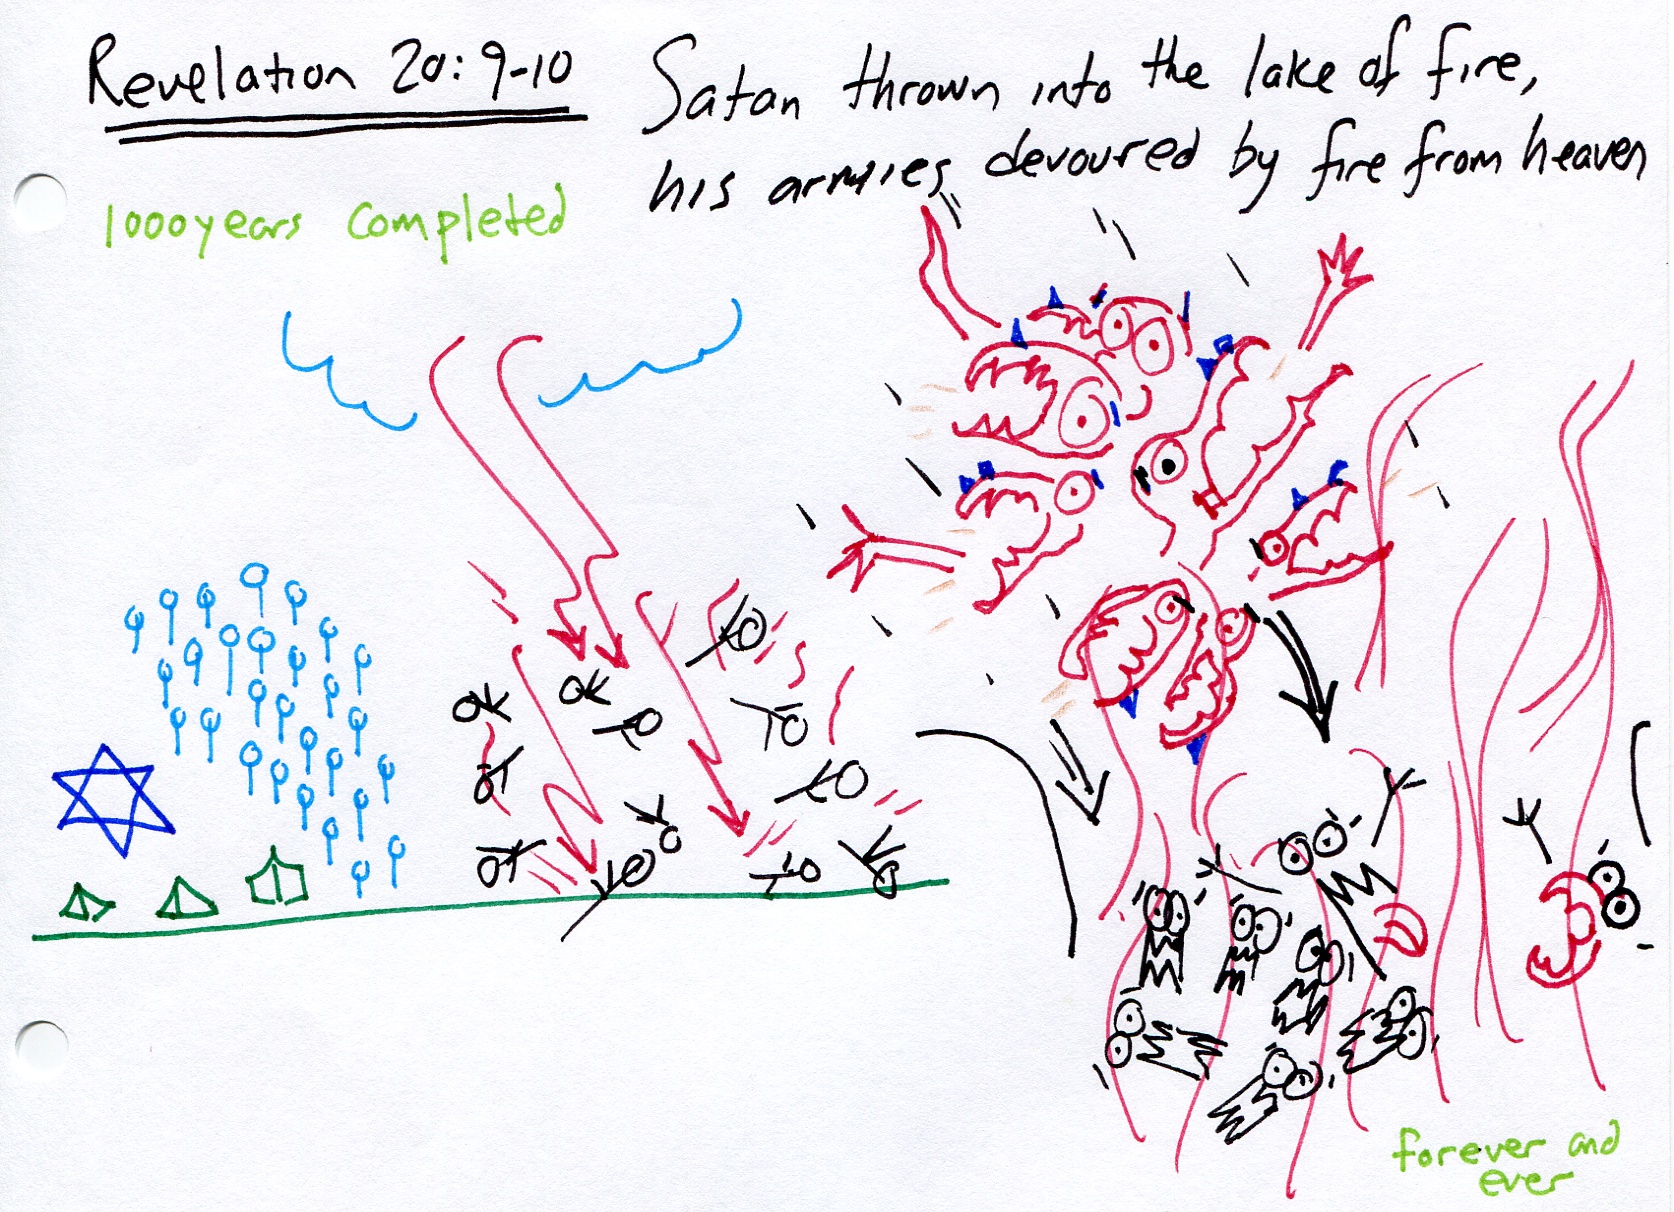 Revelation 20:9-10
Satan thrown into the lake of fire,
his armies devoured by fire from heaven
1000 years completed
forever and
ever